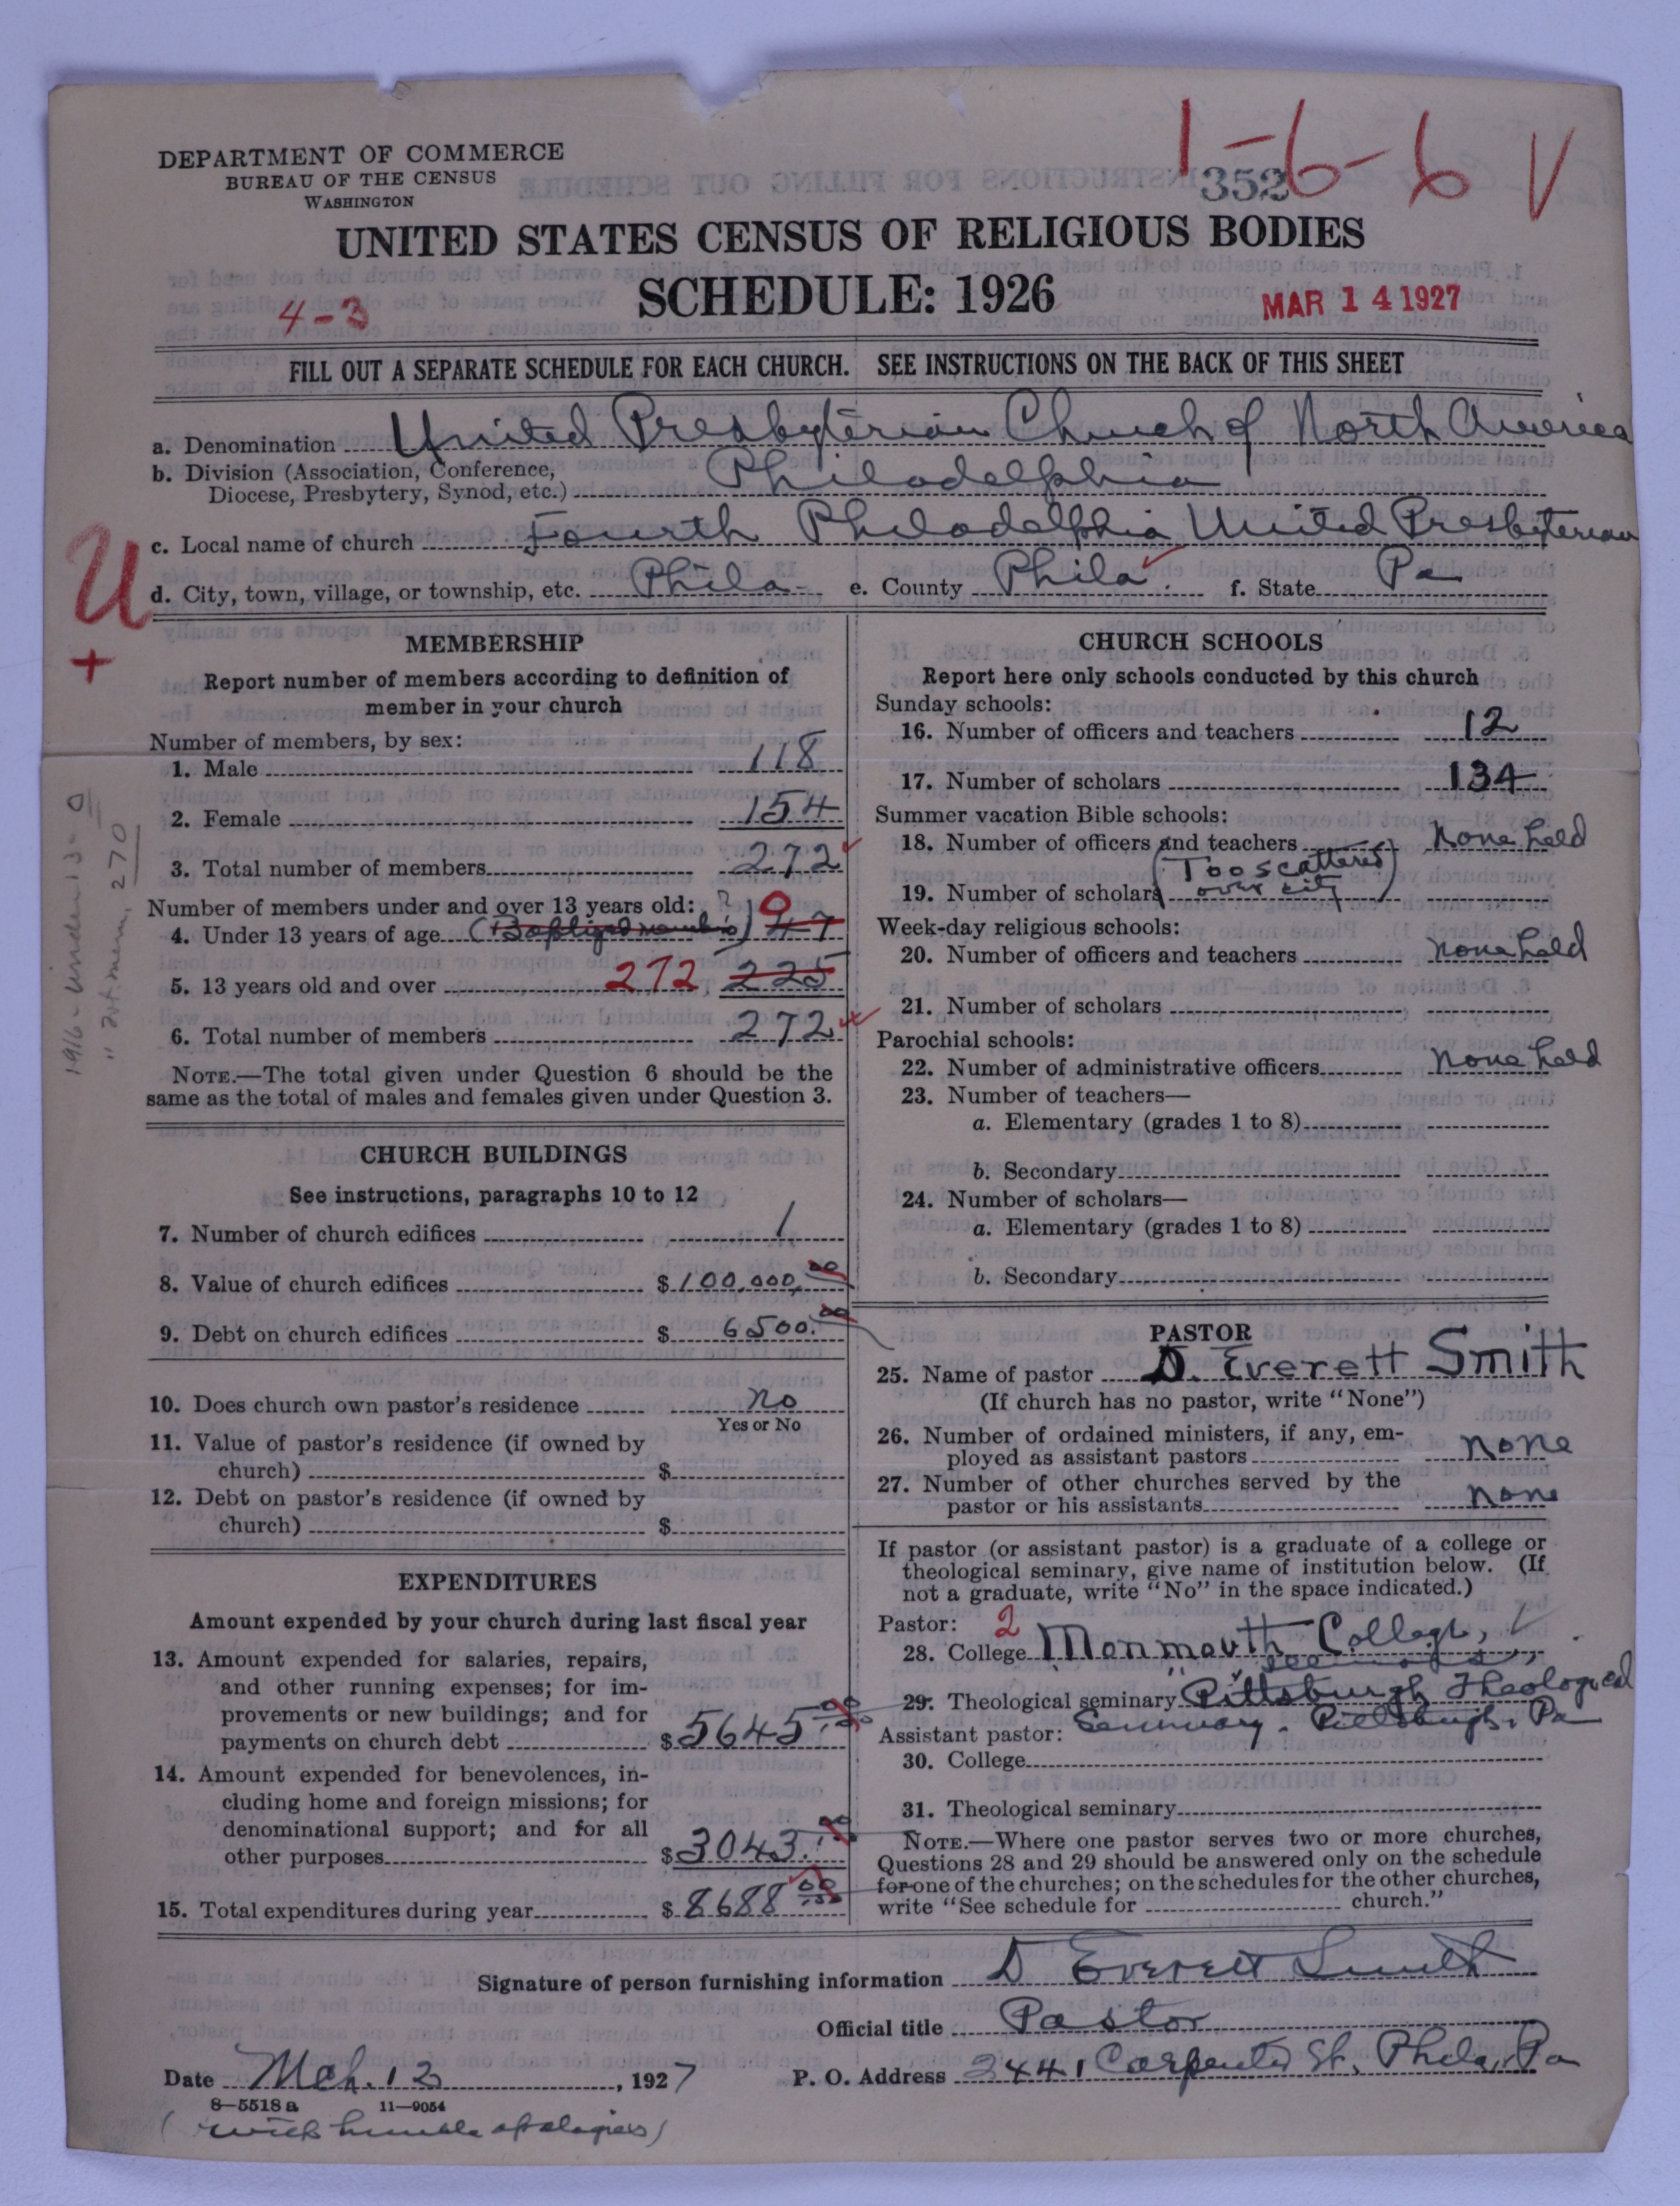 1-6-6 V
DEPARTMENT OF COMMERCE
BUREAU OF THE CENSUS
WASHINGTON
352
UNITED STATES CENSUS OF RELIGIOUS BODIES
SCHEDULE: 1926
4-3
MAR 14 1927
FILL OUT A SEPARATE SCHEDULE FOR EACH CHURCH. SEE INSTRUCTIONS ON THE BACK OF THIS SHEET
a. Denomination United Presbyterian Church of North America
b. Division (Association, Conference,
Diocese, Presbytery, Synod, etc.) Philadelphia
c. Local name of church Fourth Philadelphia United Presbyterian
d. City, town, village, or township, etc. Phila- e. County Phila. f. State Pa
U
+
MEMBERSHIP
Report number of members according to definition of
member in your church
Number of members, by sex:
1. Male 118
2. Female 154
3. Total number of members 272
Number of members under and over 13 years old: ?
4. Under 13 years of age (Baptized members) 47 0
5. 13 years old and over 272 225
6. Total number of members 272
NOTE.—The total given under Question 6 should be the
same as the total of males and females given under Question 3.
1916-Under 13- 0
" Tot. mem. 270
CHURCH BUILDINGS
See instructions, paragraphs 10 to 12
7. Number of church edifices 1
8. Value of church edifices $100,000.00
9. Debt on church edifices $6500.00
10. Does church own pastor's residence no
Yes or No
11. Value of pastor's residence (if owned by
church) $
12. Debt on pastor's residence (if owned by
church) $
EXPENDITURES
Amount expended by your church during last fiscal year
13. Amount expended for salaries, repairs,
and other running expenses; for im-
provements or new buildings; and for
payments on church debt $5645.00
14. Amount expended for benevolences, in-
cluding home and foreign missions; for
denominational support; and for all
other purposes $3043.00
15. Total expenditures during year $8688.00
CHURCH SCHOOLS
Report here only schools conducted by this church
Sunday schools:
16. Number of officers and teachers 12
17. Number of scholars 134
Summer vacation Bible schools:
18. Number of officers and teachers none held
19. Number of scholars (Too scattered
over city)
Week-day religious schools:
20. Number of officers and teachers none held
21. Number of scholars
Parochial schools:
22. Number of administrative officers none held
23. Number of teachers—
a. Elementary (grades 1 to 8)
b. Secondary
24. Number of scholars—
a. Elementary (grades 1 to 8)
b. Secondary
PASTOR
25. Name of pastor D. Everett Smith
(If church has no pastor, write "None")
26. Number of ordained ministers, if any, em-
ployed as assistant pastors none
27. Number of other churches served by the
pastor or his assistants none
If pastor (or assistant pastor) is a graduate of a college or
theological seminary, give name of institution below. (If
not a graduate, write "No" in the space indicated.)
Pastor: 2
28. College Monmouth College,
29. Theological seminary Pittsburgh Theological
Seminary. Pittsburgh, Pa
Assistant pastor:
30. College
31. Theological seminary
NOTE.—Where one pastor serves two or more churches,
Questions 28 and 29 should be answered only on the schedule
for one of the churches; on the schedules for the other churches,
write "See schedule for church."
Signature of person furnishing information D Everett Smith
Official title Pastor
Date Mch. 12, 1927 P. O. Address 2441 Carpenter St. Phila, Pa
8-5518 a 11-9054
(with humble apologies)